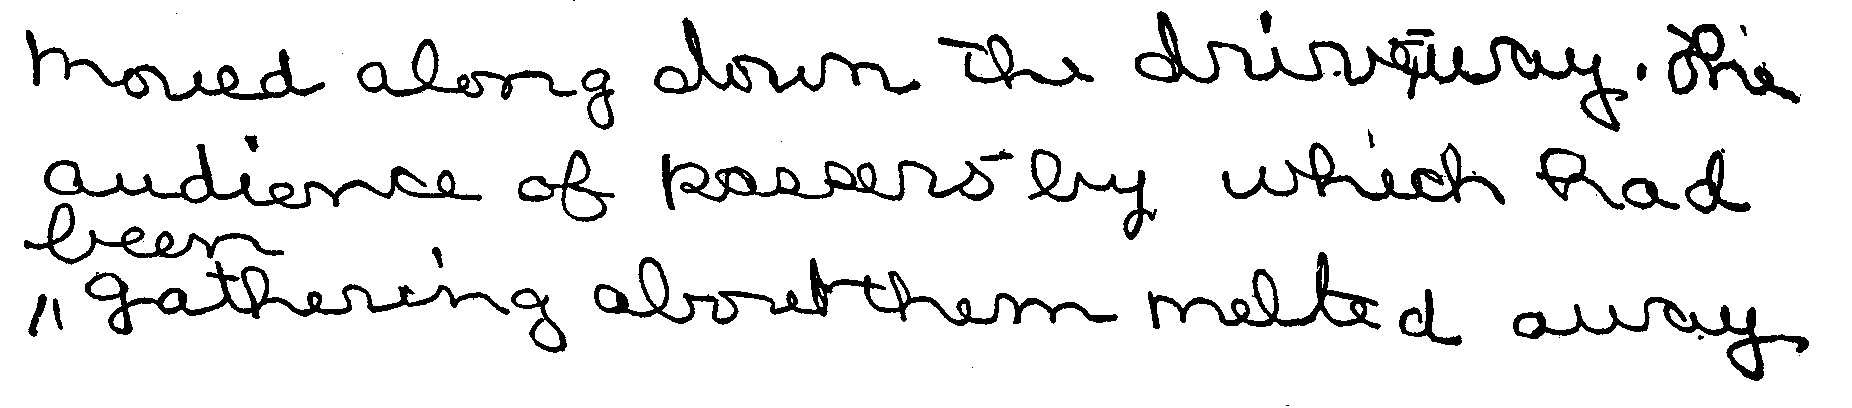 moved along down the driveway. The
audience of passers-by which had
been
" gathering about them melted away